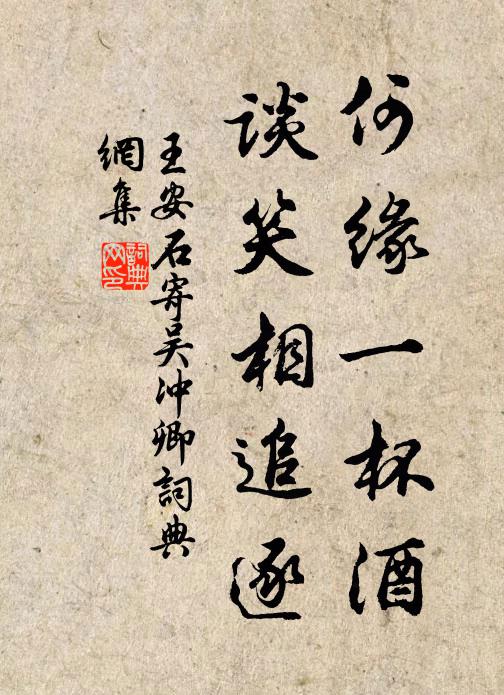 何缘一杯酒
谈笑相追逐
王安石寄吴冲卿詞典
網集
詞典
网印